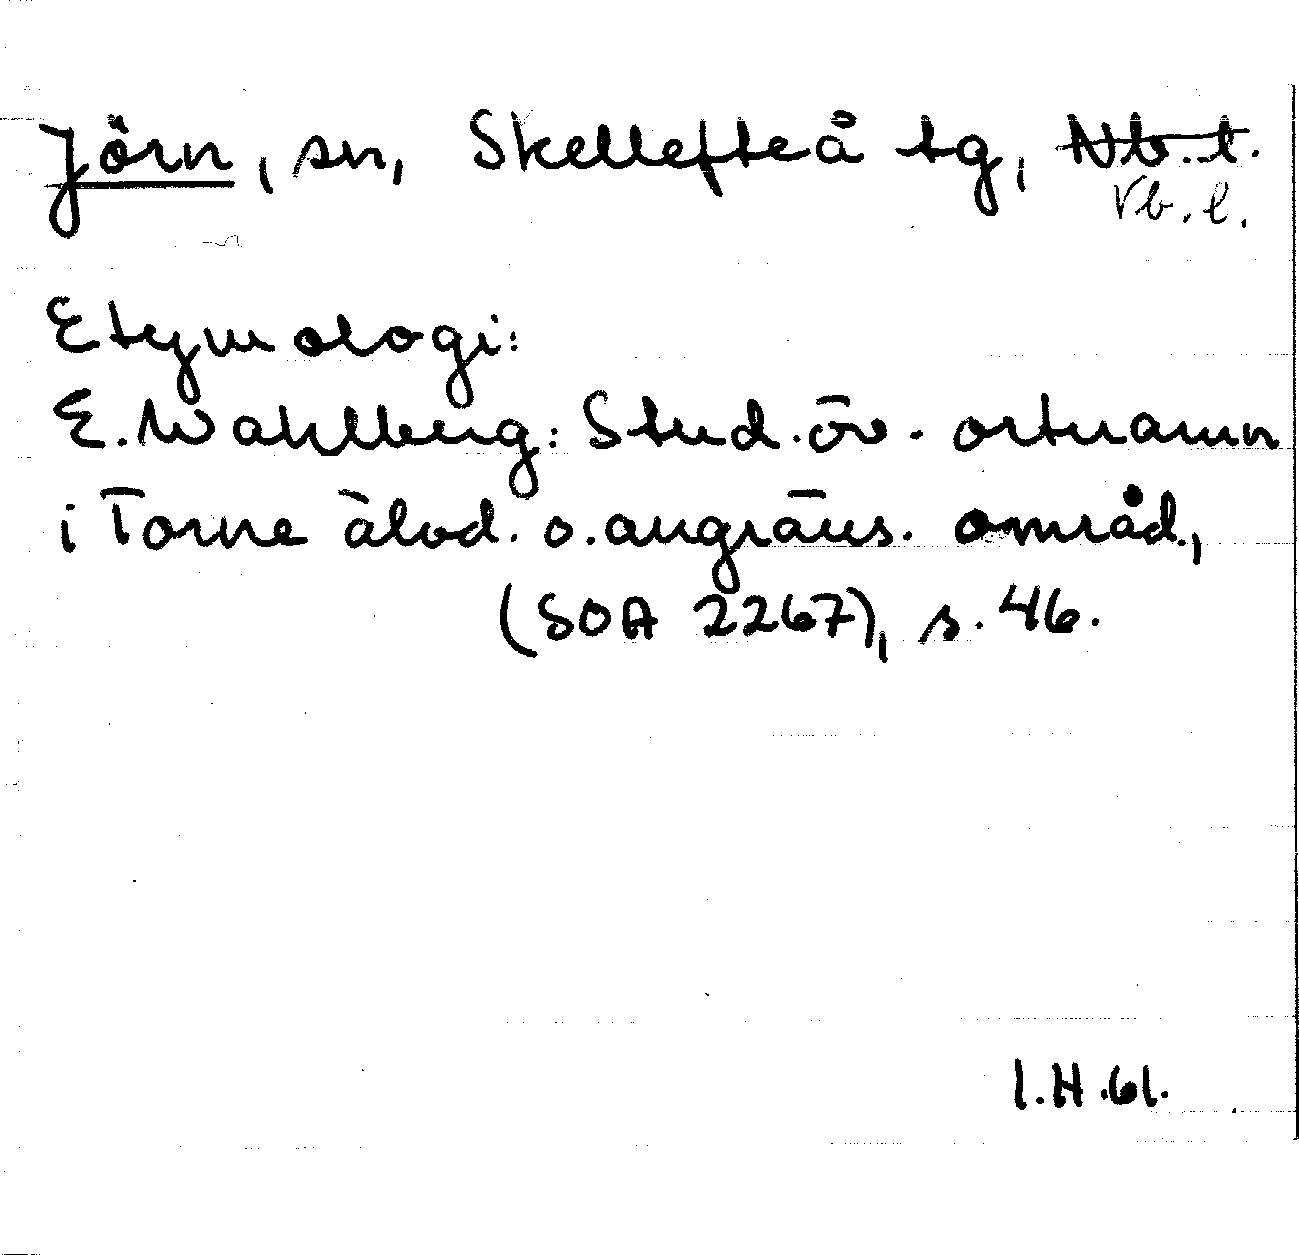 Jörn, sn, Skellefteå tg, Nb. l.
Vb. l.
Etymologi:
E. Wahlberg: Stud. öv. ortnamn
i Torne älvd. o. angräns. områd.,
(SOA 2267), s. 46.
I.H.61.